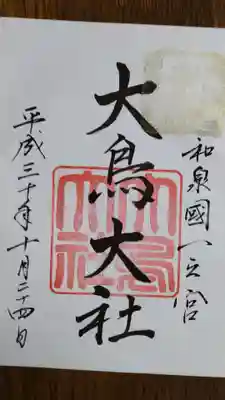 和泉國一之宮
大鳥大社
平成三十年十月二十四日